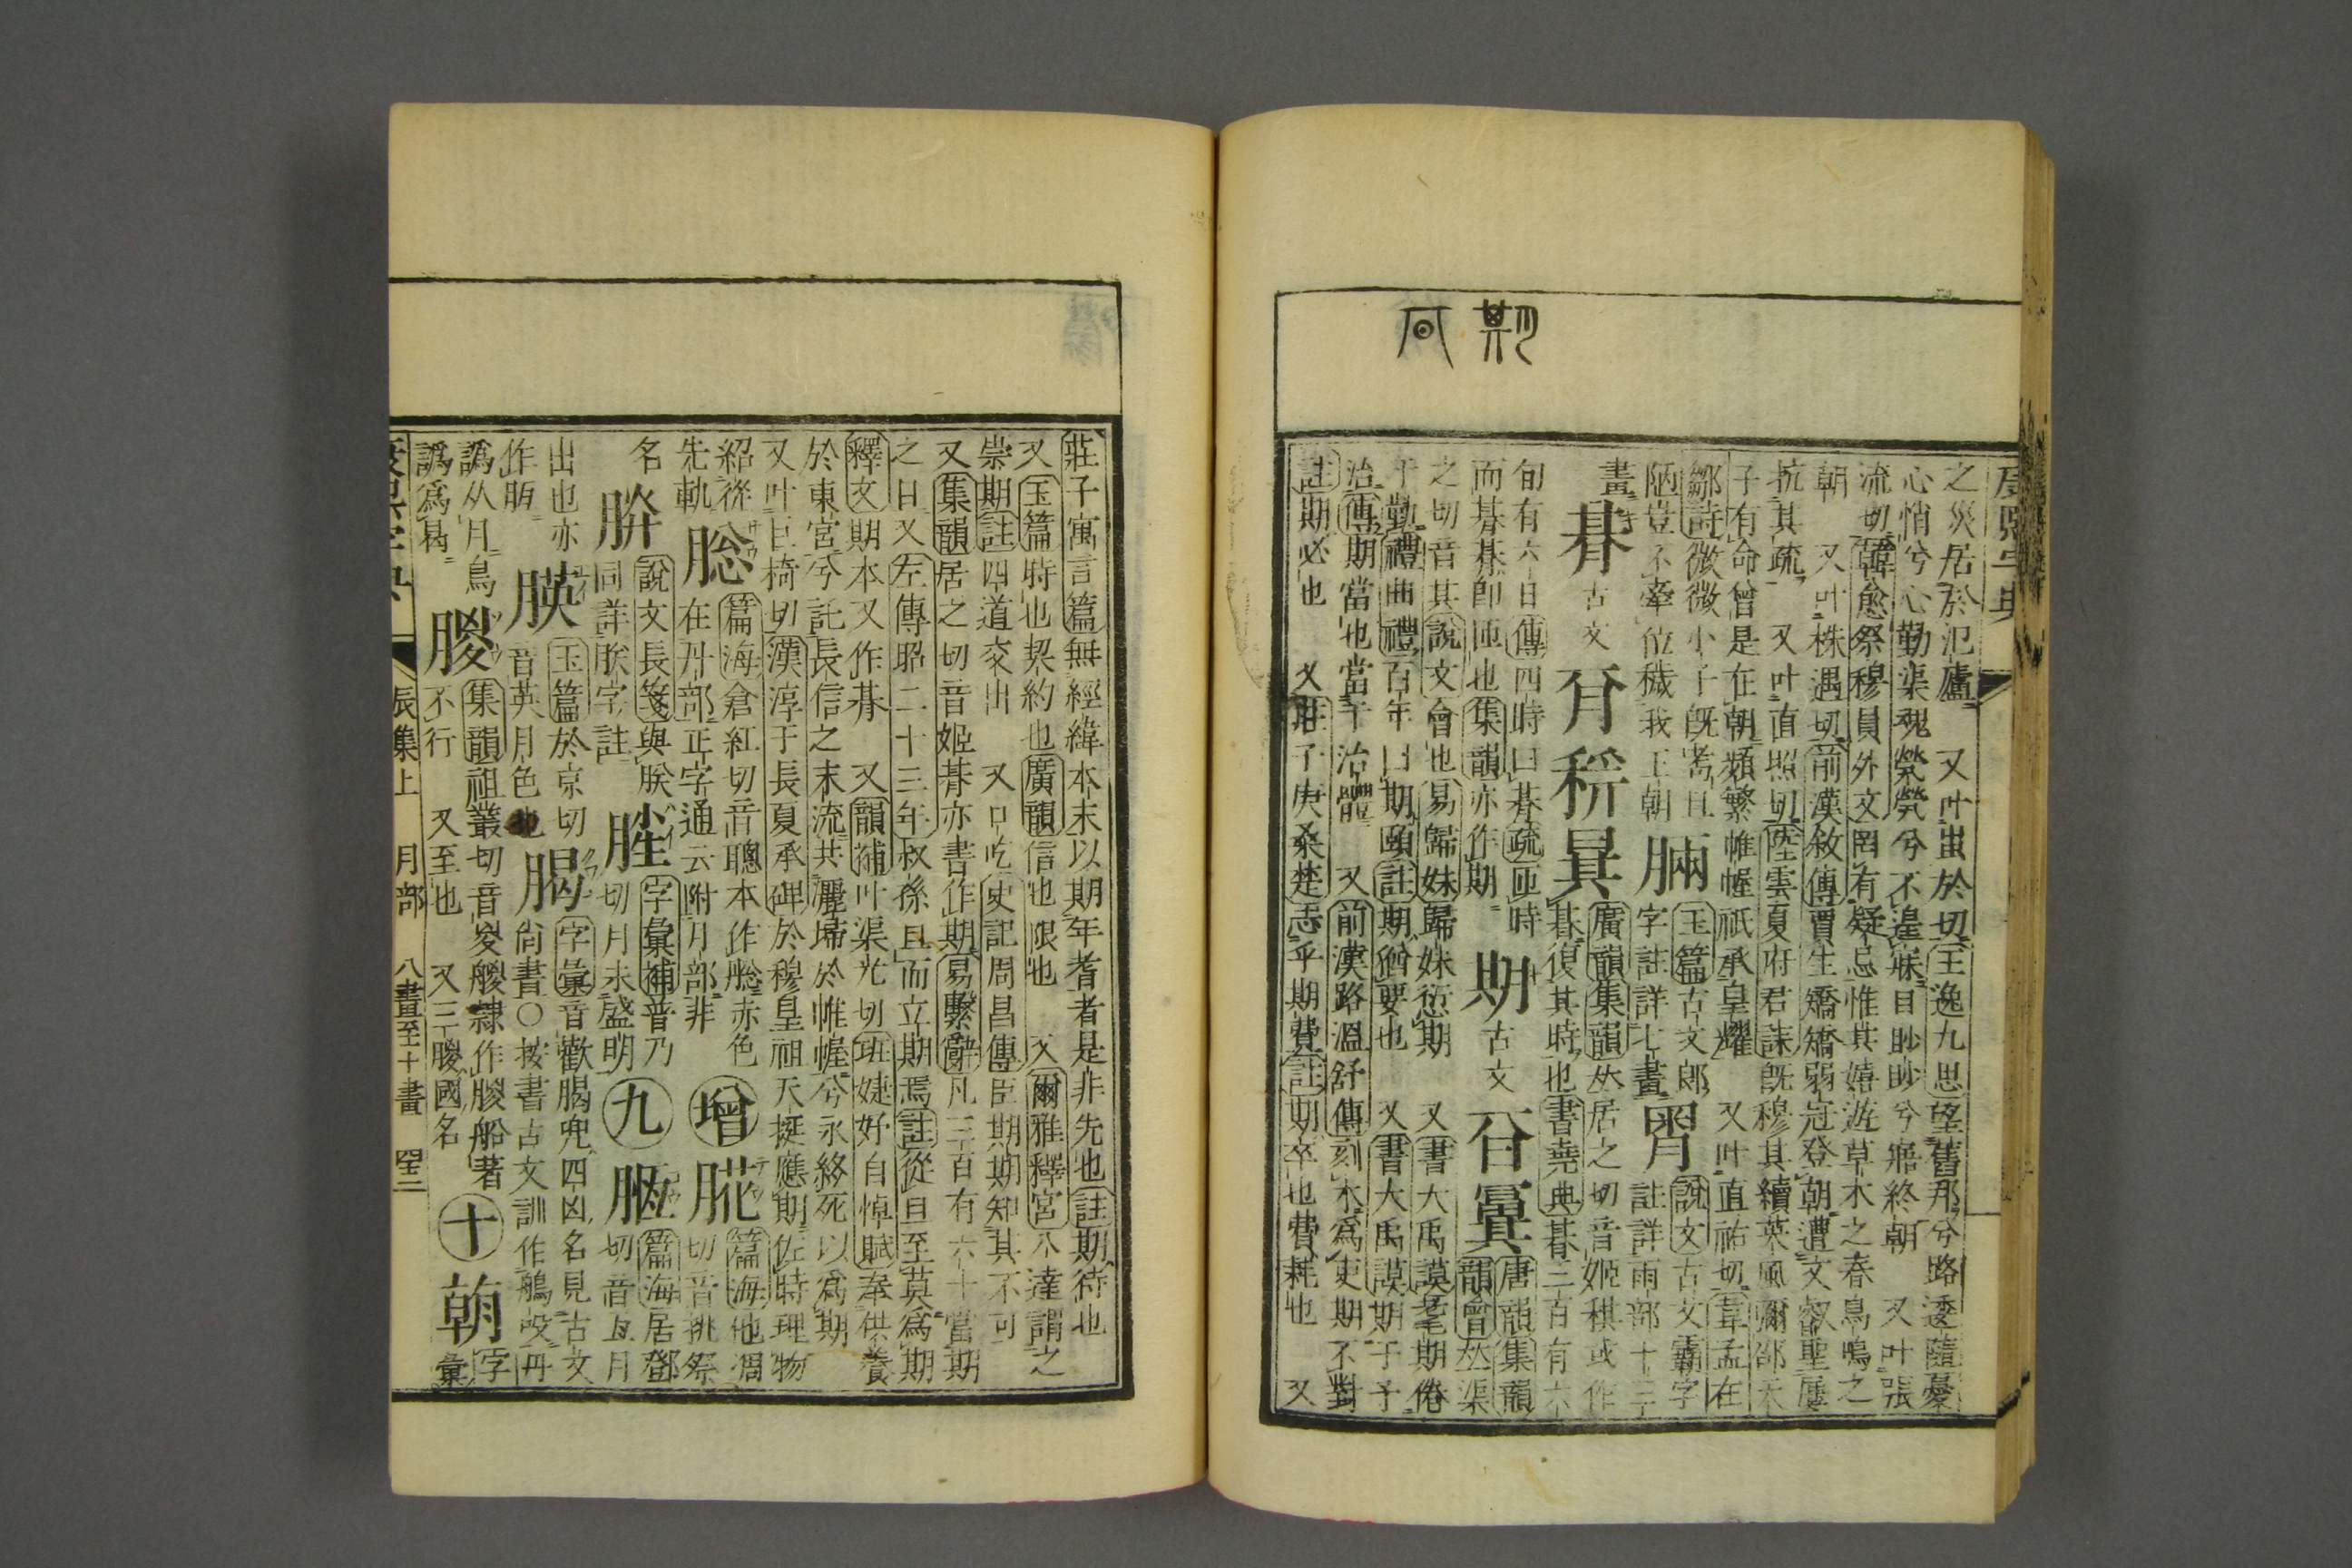 期
康熙字典
之災居於汜廬 又叶蚩於切王逸九思望舊邦兮路逶隨憂
心悄兮心勤渠魂煢煢兮不遑寐目眇眇兮寤終朝 又叶張
流切韓愈祭穆員外文罔有疑忌惟其嬉遊草木之春鳥鳴之
朝 又叶株遇切前漢敘傳賈生矯矯弱冠登朝遭文叡聖屢
抗其疏 又叶直照切陸雲夏府君誄旣穆其續葉風彌邵天
子有命曾是在朝類繁帷幄祇承皇耀 又叶直祐切韋孟在
鄒詩微微小子旣耉且
陋豈不牽位穢我王朝
䐄
玉篇古文郞
字註詳七畫
胷
說文古文霸字
註詳雨部十三
畫
朞
古文
稘
廣韻集韻𠀤居之切音姬稘或作
朞復其時也書堯典朞三百有六
旬有六日傳四時曰朞疏匝時
而朞朞卽匝也集韻亦作期
期
古文
唐韻集韻
韻會𠀤渠
之切音其說文會也易歸妹歸妹愆期 又書大禹謨耄期倦
于勤禮曲禮百年曰期頤註期猶要也 又書大禹謨期于予
治傳期當也當于治體 又前漢路溫舒傳刻木爲吏期不對
註期必也 又莊子庚桑楚志乎期費註期卒也費耗也 又
莊子寓言篇無經緯本末以期年耆者是非先也註期待也
又玉篇時也契約也廣韻信也限也 又爾雅釋宮八達謂之
崇期註四道交出 又口吃史記周昌傳臣期期知其不可
又集韻居之切音姬朞亦書作期易繫辭凡三百有六十當期
之日又左傳昭二十三年叔孫旦而立期焉註從旦至莫爲期
釋文期本又作朞 又韻補叶渠尤切班婕妤自悼賦奉供養
於東宮兮託長信之末流共灑埽於帷幄兮永終死以爲期
又叶巨椅切漢淳于長夏承碑於穆皇祖天挺應期佐時理物
紹從
先軌
䐋
篇海倉紅切音聰本作䐋赤色
在丹部正字通云附月部非
增
篇海他凋
切音挑祭
名
說文長箋與朕
同詳朕字註
字彙補普乃
切月未盛明
九
篇海居鄧
切音亙月
出也亦
作䏾
朠
玉篇於京切
音英月色也
字彙音歡䑏兜四凶名見古文
尙書○按書古文訓作鵃吺丹
譌从月鳥
譌爲曷
朡
集韻祖叢切音㚇艐隷作朡船著
不行 又至也 又三朡國名
十
字
彙
辰集上 月部 八畫至十畫